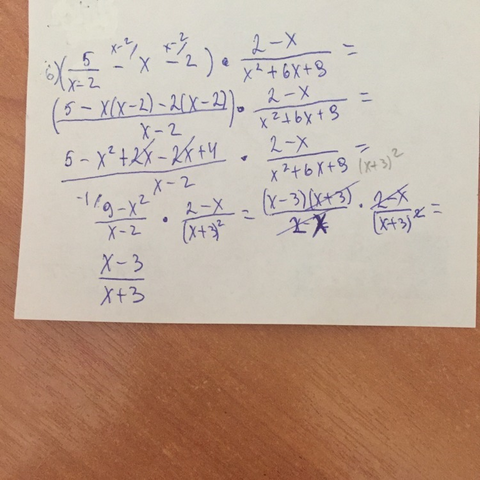 б) (5/(x-2) - x^(x-2/ - 2^(x-2/) · (2-x)/(x²+6x+9) =
(5-x(x-2)-2(x-2))/(x-2) · (2-x)/(x²+6x+9) =
(5-x²+2x-2x+4)/(x-2) · (2-x)/(x²+6x+9) = (x+3)²
-1/ (9-x²)/(x-2) · (2-x)/(x+3)² = ((x-3)(x+3))/(2-x) · (2-x)/(x+3)² =
(x-3)/(x+3)